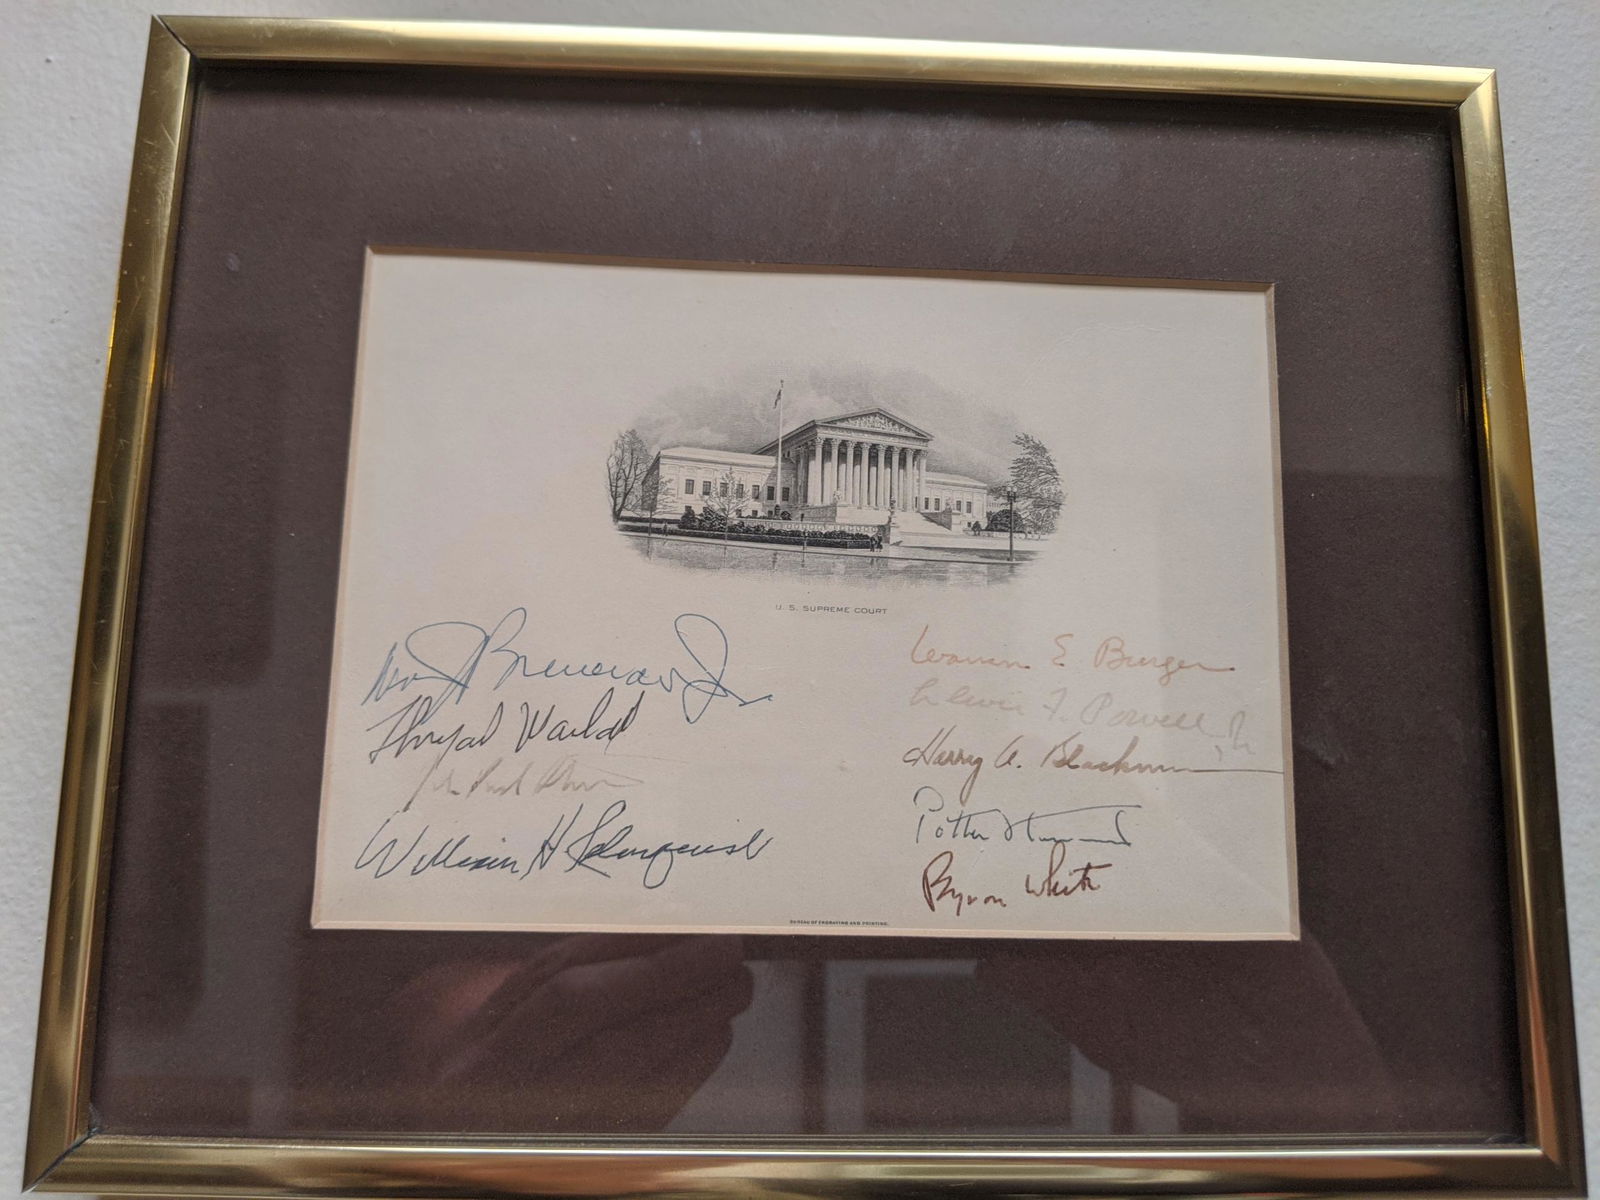 U. S. SUPREME COURT
Wm J Brennan Jr.
Thurgood Marshall
John Paul Stevens
William H Rehnquist
Warren E Burger
Lewis F. Powell, Jr.
Harry A. Blackmun
Potter Stewart
Byron White
BUREAU OF ENGRAVING AND PRINTING.